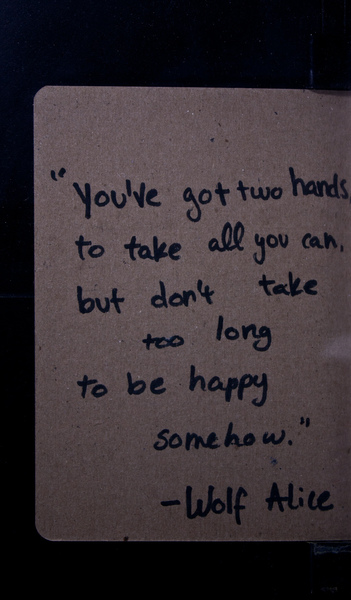 "You've got two hands,
to take all you can,
but don't take
too long
to be happy
somehow."
-Wolf Alice